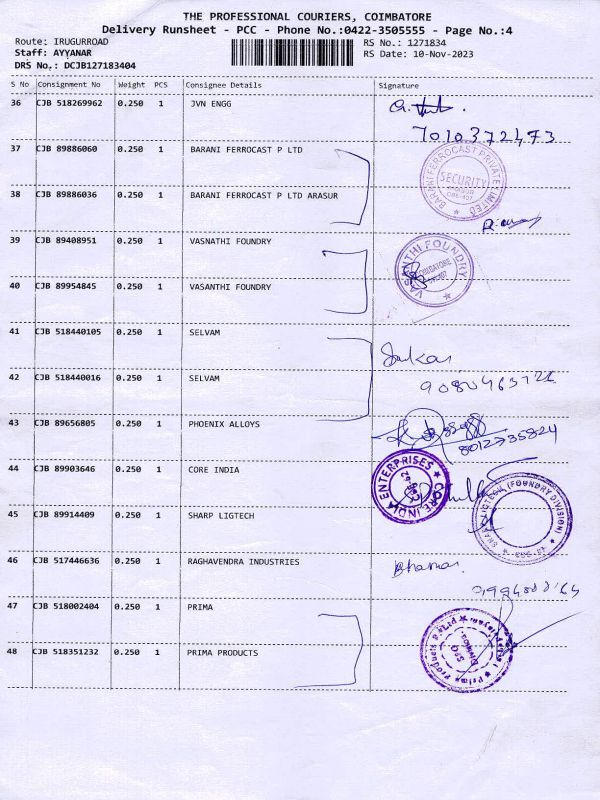 THE PROFESSIONAL COURIERS, COIMBATORE
Delivery Runsheet - PCC - Phone No.:0422-3505555 - Page No.:4
Route: IRUGURROAD
RS No.: 1271834
Staff: AYYANAR
RS Date: 10-Nov-2023
DRS No.: DCJB127183404
S No Consignment No Weight PCS Consignee Details Signature
36 CJB 518269962 0.250 1 JVN ENGG
7010372473
37 CJB 89886060 0.250 1 BARANI FERROCAST P LTD
BARANI FERROCAST PRIVATE LIMITED
SECURITY
38 CJB 89886036 0.250 1 BARANI FERROCAST P LTD ARASUR
39 CJB 89408951 0.250 1 VASNATHI FOUNDRY
VASANTHI FOUNDRY
COIMBATORE
40 CJB 89954845 0.250 1 VASANTHI FOUNDRY
41 CJB 518440105 0.250 1 SELVAM
42 CJB 518440016 0.250 1 SELVAM
43 CJB 89656805 0.250 1 PHOENIX ALLOYS
44 CJB 89903646 0.250 1 CORE INDIA
CORE INDIA ENTERPRISES
45 CJB 89914409 0.250 1 SHARP LIGTECH
(FOUNDRY DIVISION)
46 CJB 517446636 0.250 1 RAGHAVENDRA INDUSTRIES
47 CJB 518002404 0.250 1 PRIMA
48 CJB 518351232 0.250 1 PRIMA PRODUCTS